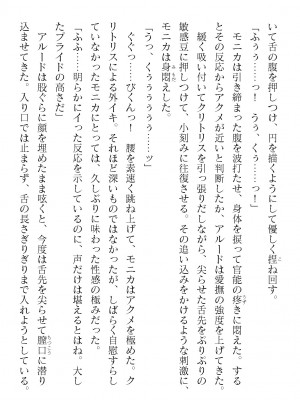 いて舌の腹を押しつけ、円を描くようにして優しく捏ね回す。
「ふぅ……っ！　うぅ、く……っ！」
　モニカは引き締まった腹を波打たせ、身体を捩って官能の疼きに悶えた。する
とその反応からアクメが近いと判断したか、アルードは愛撫の強度を上げてきた。
　緩く吸い付いてクリトリスを引っ張りだしながら、尖らせた舌先をぷりぷりの
敏感豆に押しつけて、小刻みに往復させる。その追い込みをかけるような刺激に、
モニカは身悶えした。
「うっ、くぅぅぅぅぅ……ッ」
　ぐぐっ……びくんっ！　腰を素速く跳ね上げて、モニカはアクメを極めた。ク
リトリスによる外イキ。それほど深いものではなかったが、しばらく自慰すらし
ていなかったモニカにとっては、久しぶりに味わった性感の極みだった。
「ふふ……明らかにイった反応を示しているのに、声だけは堪えるとはね。大し
たプライドの高さだ」
　アルードは股ぐらに顔を埋めたまま呟くと、今度は舌先を尖らせて膣口に潜り
込ませてきた。入り口では止まらず、舌の長さぎりぎりまで入れようとしている。